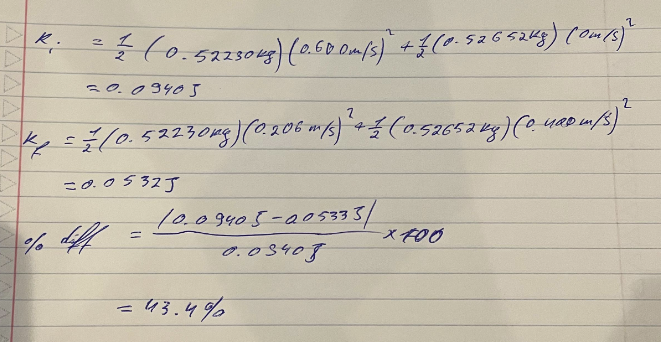 Ki = 1/2 (0.52230kg)(0.600m/s)² + 1/2 (0.52652kg)(0m/s)²
= 0.0940J
Kf = 1/2 (0.52230kg)(0.206m/s)² + 1/2 (0.52652kg)(0.400m/s)²
= 0.0532J
% diff = |0.0940J - 0.0533J| / 0.0940J × 100
= 43.4%